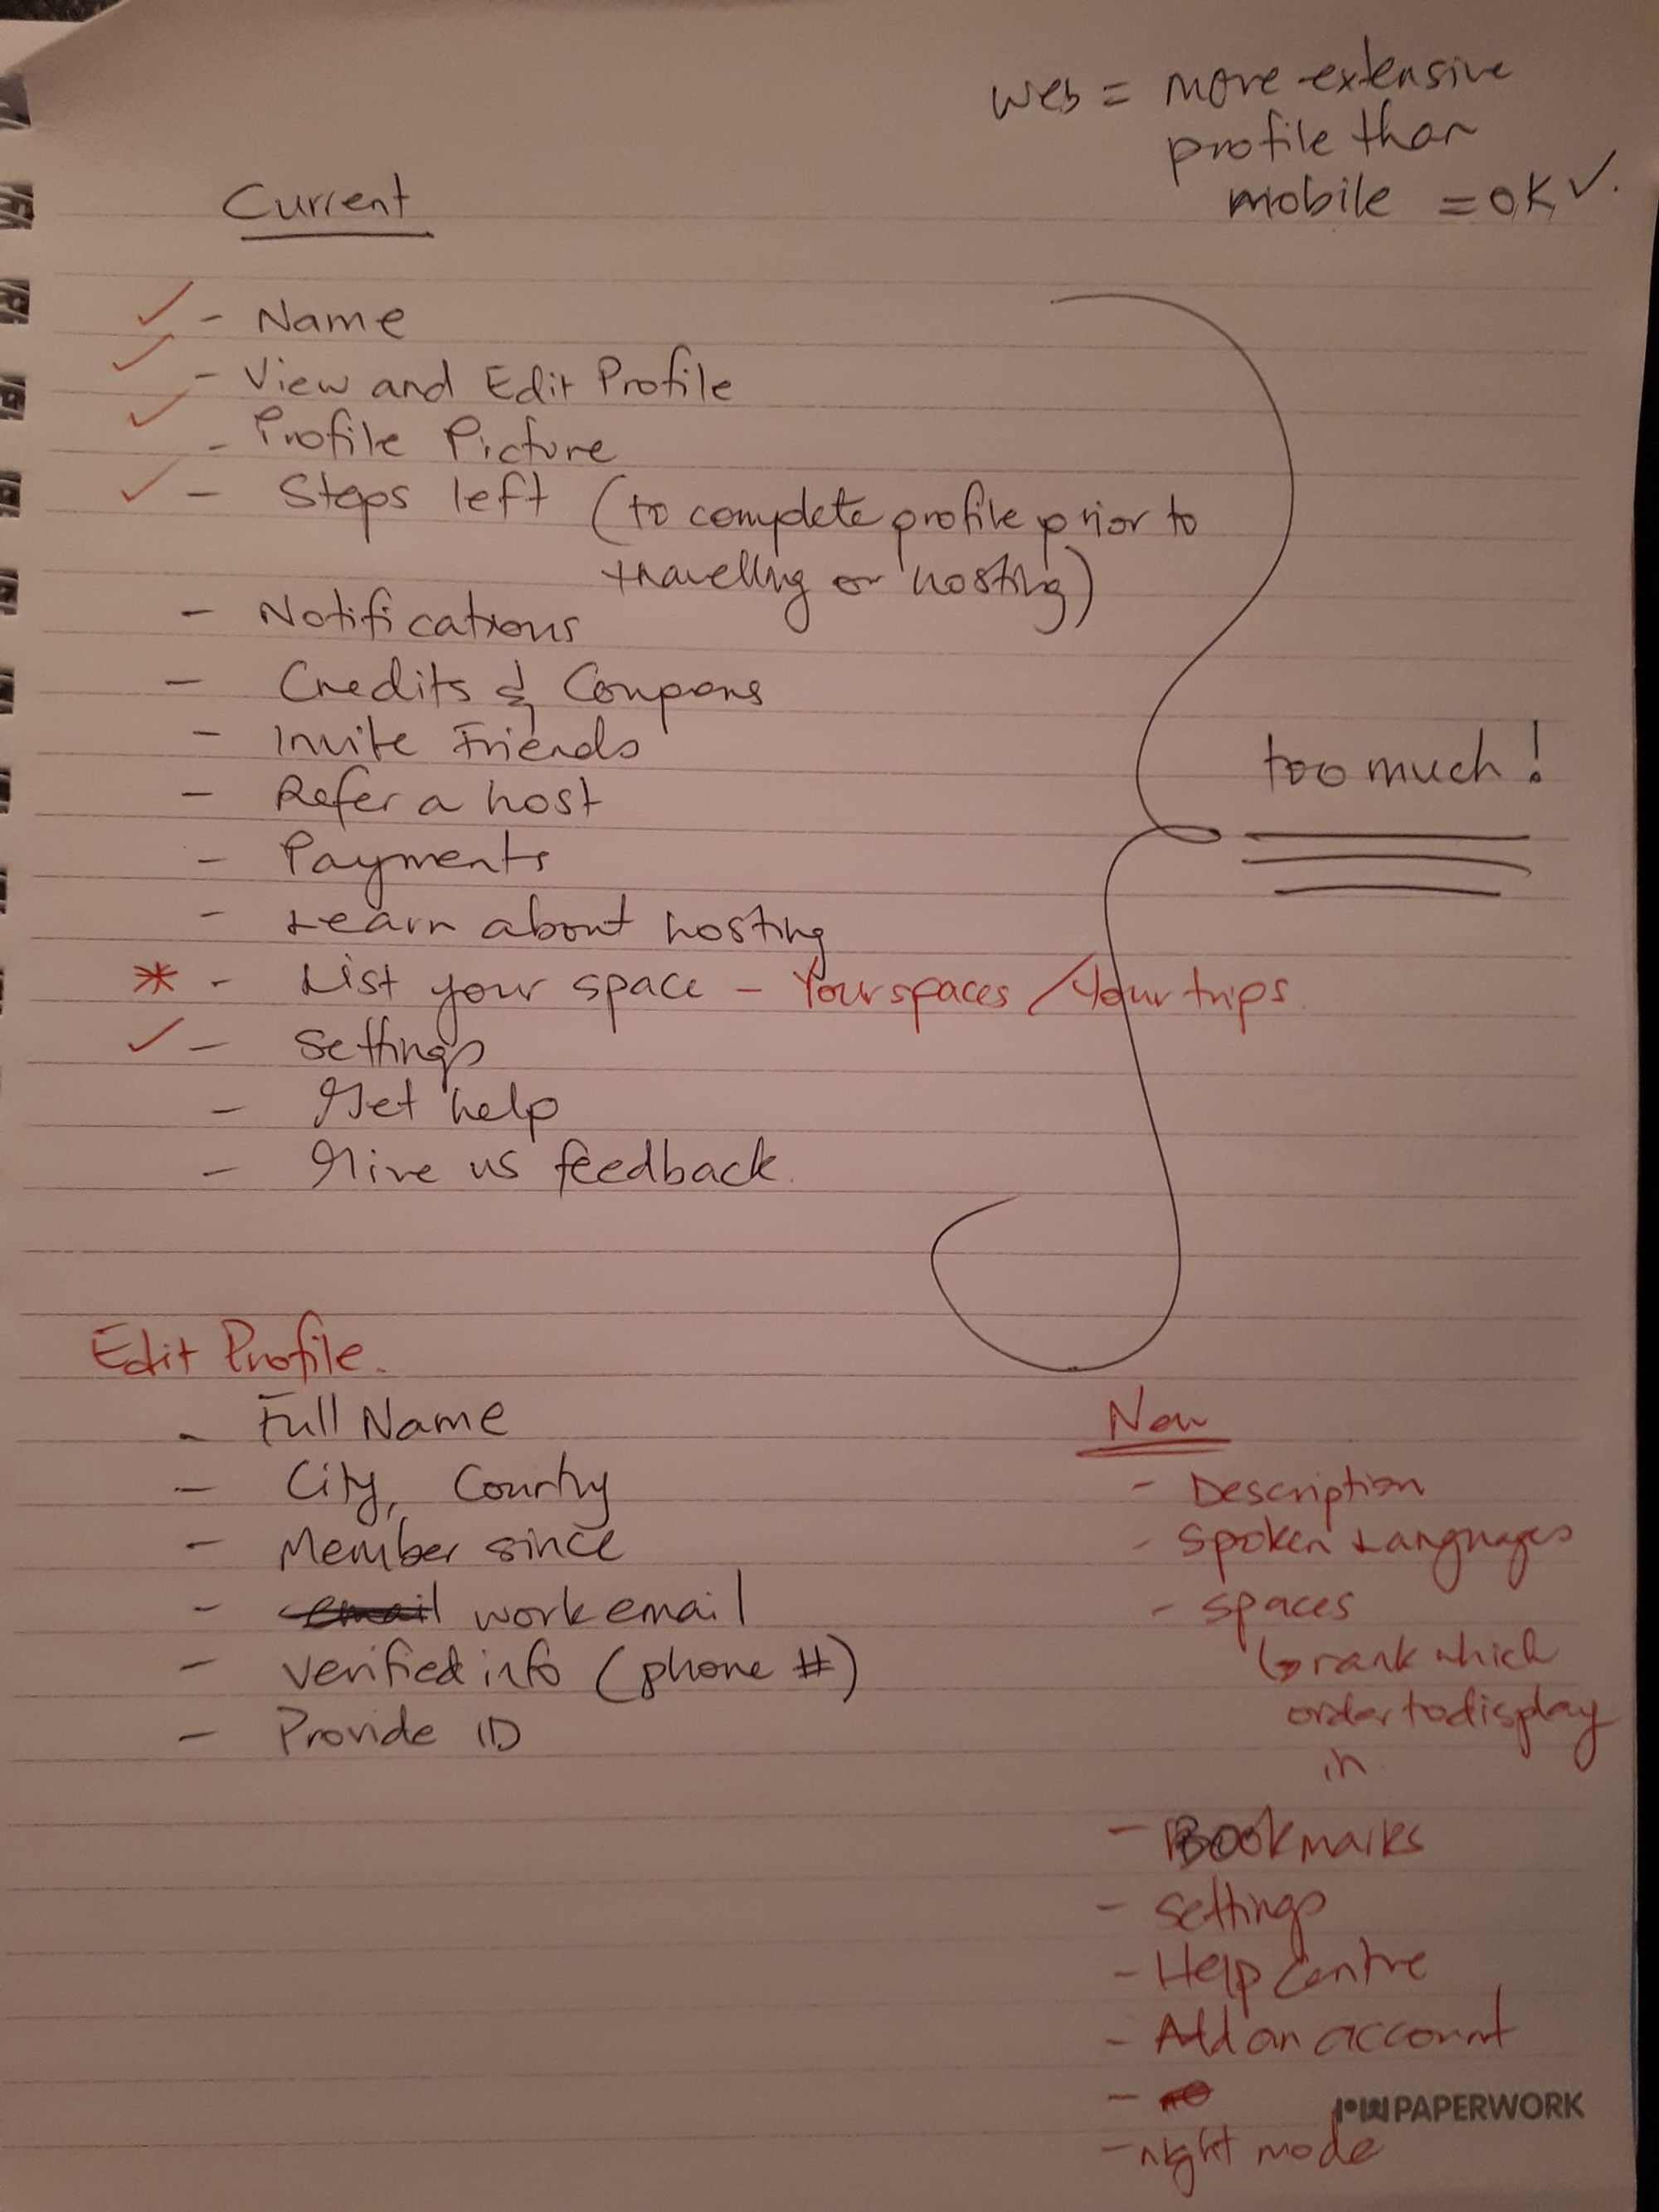 web = more extensive
profile than
mobile = ok ✓.
Current
✓ - Name
✓ - View and Edit Profile
✓ - Profile Picture
✓ - Steps left (to complete profile prior to
travelling or hosting)
- Notifications
- Credits & Coupons
- Invite Friends
- Refer a host
- Payments
- Learn about hosting
* - List your space - Your spaces / Your trips
✓ - Settings
- Get help
- Give us feedback.
too much!
Edit Profile.
- Full Name
- City, Country
- Member since
- email work email
- verified info (phone #)
- Provide ID
New
- Description
- Spoken Languages
- spaces
↳ rank which
order to display
in
- Bookmarks
- Settings
- Help Centre
- Add an account
-
- night mode
PAPERWORK